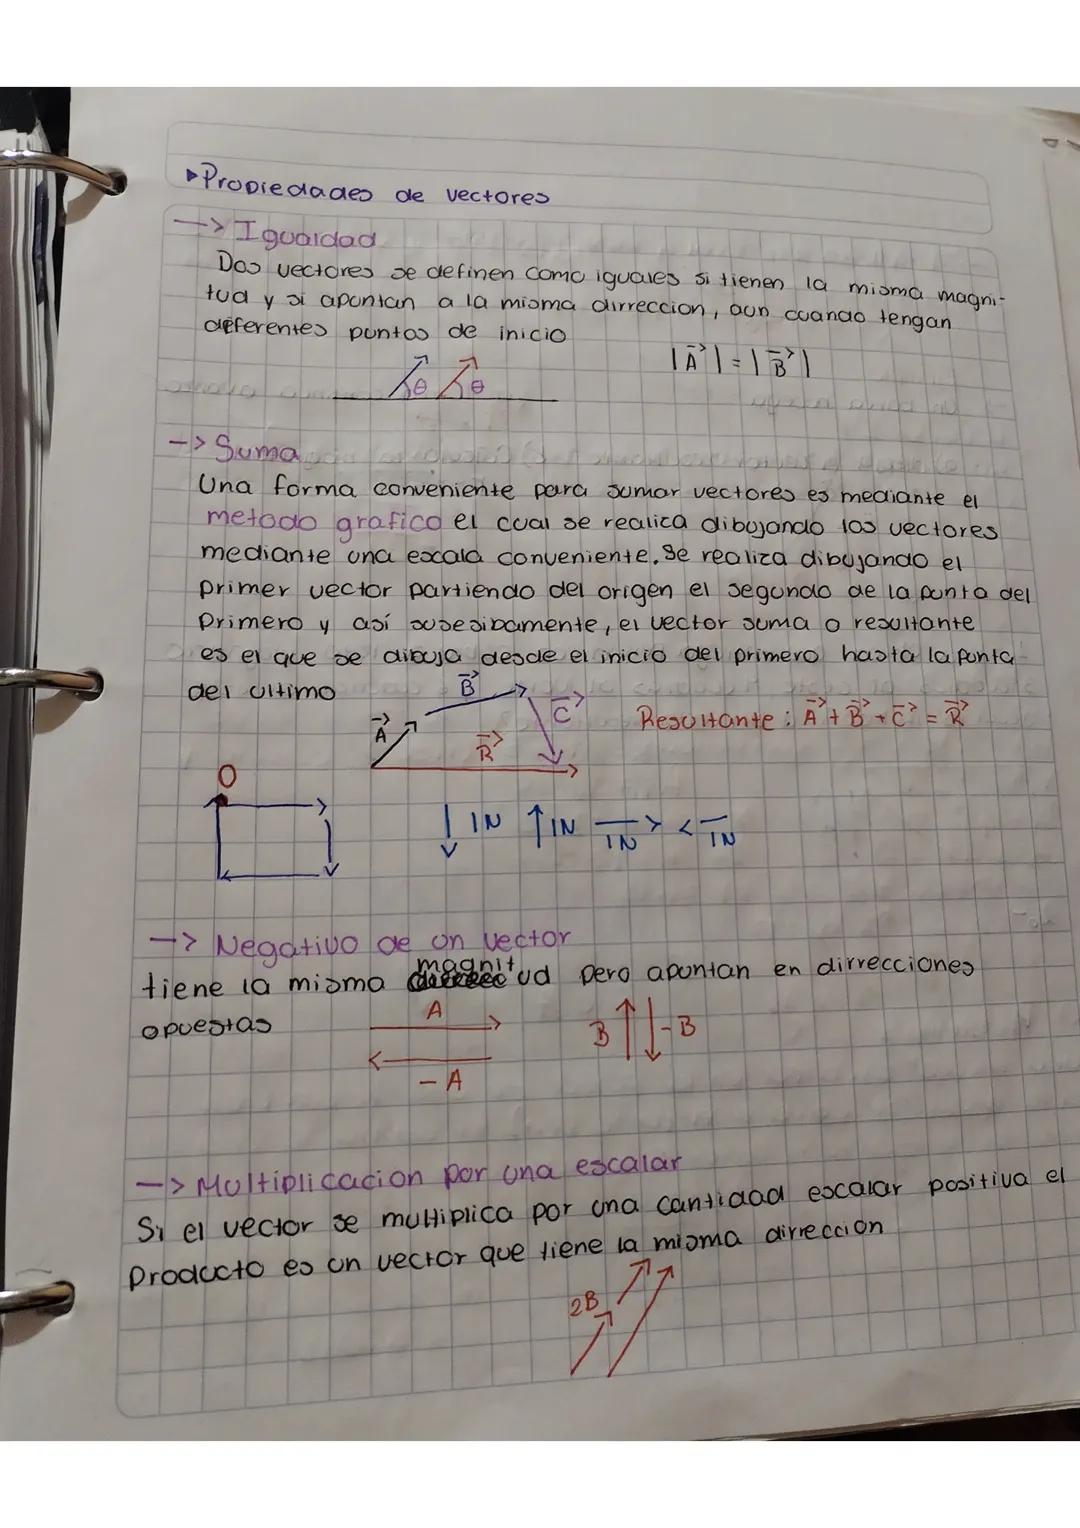 ▸Propiedades de vectores
--> Igualdad
Dos vectores se definen como iguales si tienen la misma magni-
tud y si apuntan a la misma dirreccion, aun cuando tengan
diferentes puntos de inicio
|A⃗| = |B⃗|
θ θ
--> Suma
Una forma conveniente para sumar vectores es mediante el
metodo grafico el cual se realica dibujando los vectores
mediante una escala conveniente. Se realiza dibujando el
primer vector partiendo del origen el segundo de la punta del
Primero y así susesibamente, el vector suma o resultante
es el que se dibuja desde el inicio del primero hasta la punta
del ultimo
B⃗
A⃗ R⃗ C⃗
Resultante: A⃗ + B⃗ + C⃗ = R⃗
O
1N 1N 1N 1N
--> Negativo de un vector
tiene la misma magnitud pero apuntan en dirrecciones
opuestas
A
-A
B -B
--> Multiplicacion por una escalar
Si el vector se multiplica por una cantidad escalar positiva el
Producto es un vector que tiene la misma dirreccion
2B